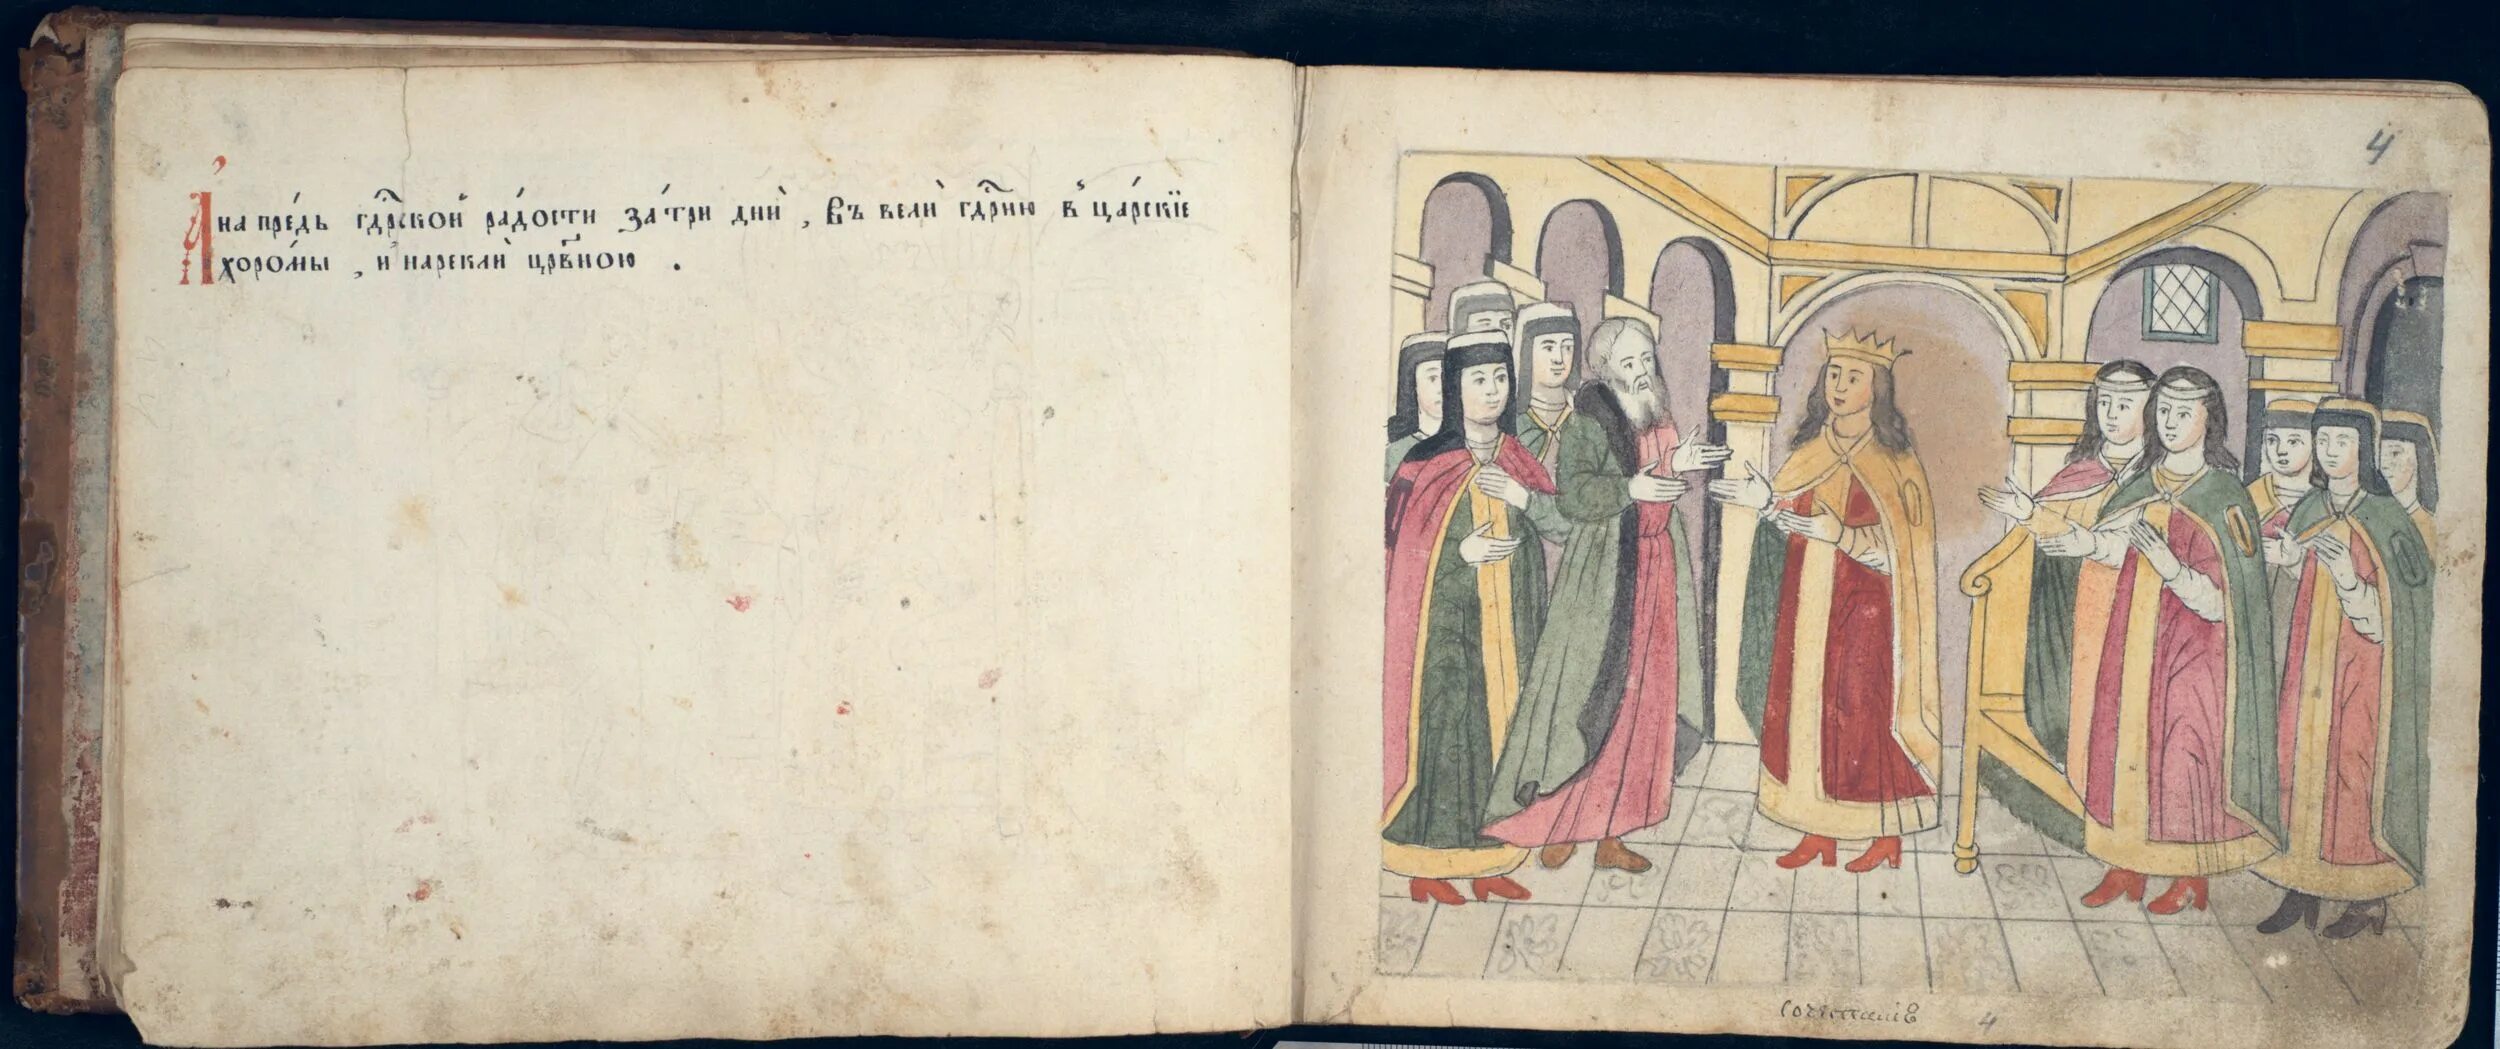 А напре́дь гдⷭ҇рской ра́дости за́ три дни̇̀ , Въ вели̇̀ гдⷭ҇рню в̾ ца́рскїе
хоро́мы , и҆ нарекли̇̀ црⷭ҇вною .
4
Сочетаніѣ
4